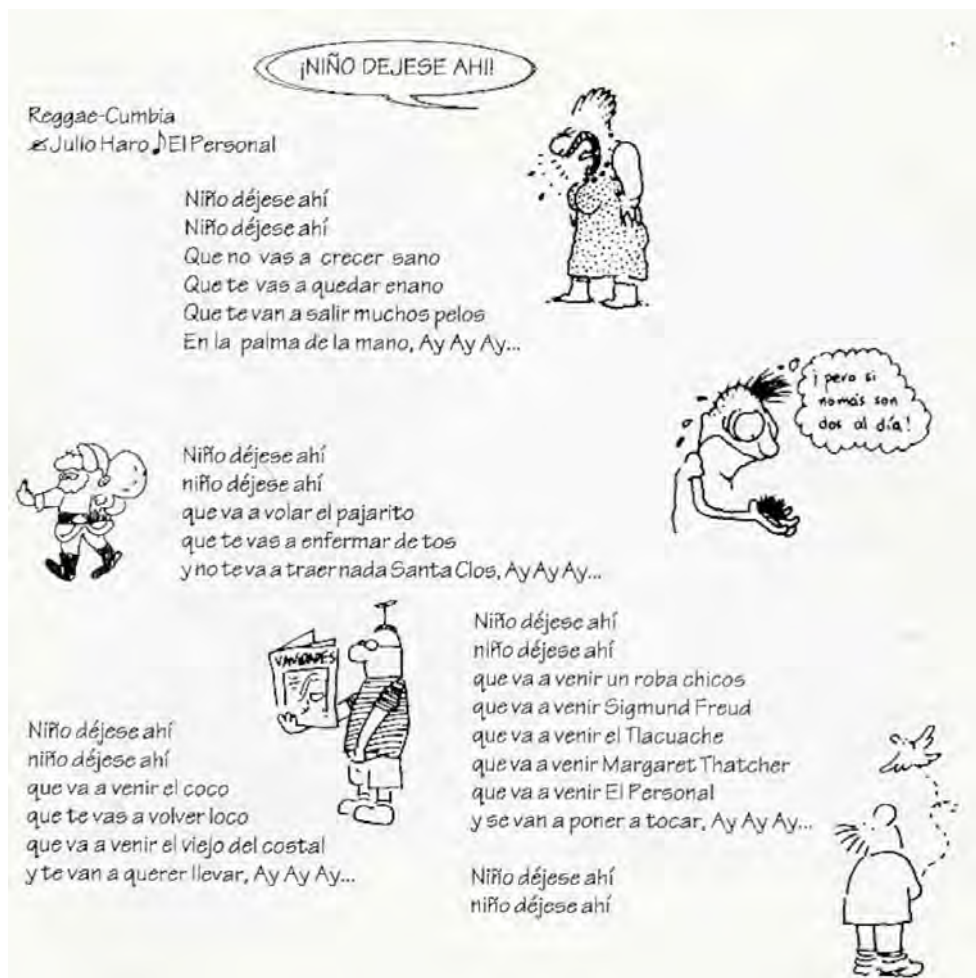 ¡NIÑO DEJESE AHI!
Reggae-Cumbia
✍Julio Haro ♪El Personal
Niño déjese ahí
Niño déjese ahí
Que no vas a crecer sano
Que te vas a quedar enano
Que te van a salir muchos pelos
En la palma de la mano, Ay Ay Ay...
¡ pero si
nomás son
dos al día!
Niño déjese ahí
niño déjese ahí
que va a volar el pajarito
que te vas a enfermar de tos
y no te va a traer nada Santa Clos, Ay Ay Ay...
VANIDADES
Niño déjese ahí
niño déjese ahí
que va a venir el coco
que te vas a volver loco
que va a venir el viejo del costal
y te van a querer llevar, Ay Ay Ay...
Niño déjese ahí
niño déjese ahí
que va a venir un roba chicos
que va a venir Sigmund Freud
que va a venir el Tlacuache
que va a venir Margaret Thatcher
que va a venir El Personal
y se van a poner a tocar, Ay Ay Ay...
Niño déjese ahí
niño déjese ahí